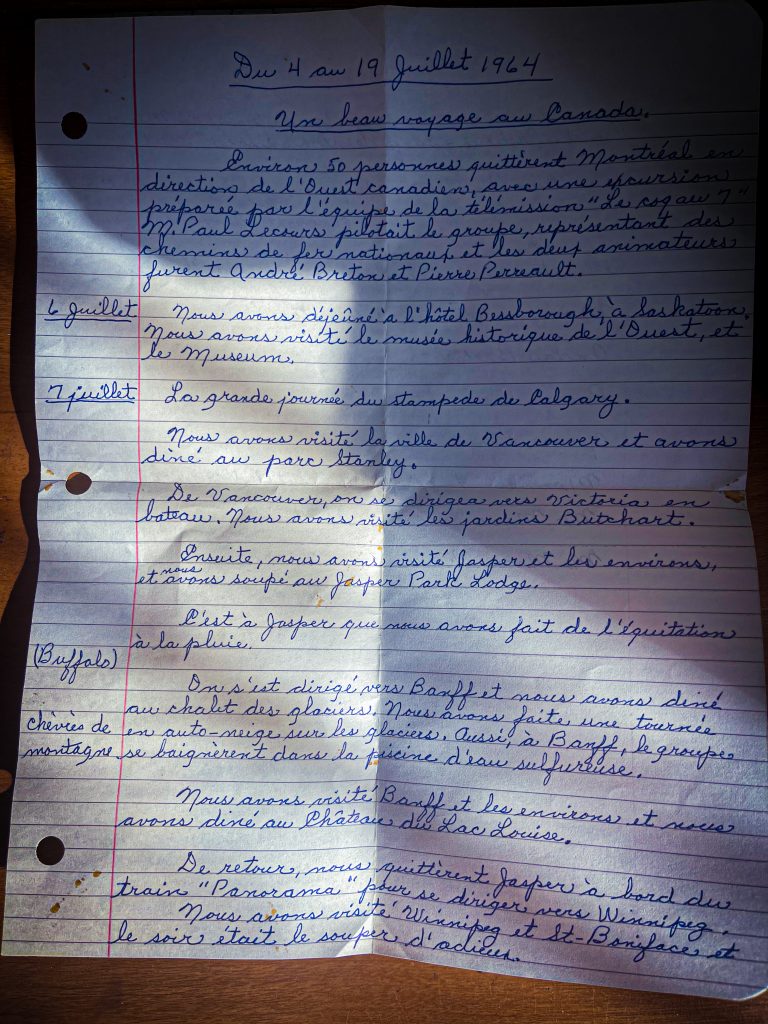 Du 4 au 19 Juillet 1964
Un beau voyage au Canada.
Environ 50 personnes quittèrent Montréal en
direction de l'Ouest canadien, avec une excursion
préparée par l'équipe de la télémission "Le cog au 7"
M. Paul Lecours pilotait le groupe, représentant des
chemins de fer nationaux et les deux animateurs
furent André Breton et Pierre Perreault.
6 Juillet Nous avons déjeûné à l'hôtel Bessborough, à Saskatoon.
Nous avons visité le musée historique de l'Ouest, et
le Museum.
7 juillet La grande journée du stampede de Calgary.
Nous avons visité la ville de Vancouver et avons
diné au parc Stanley.
De Vancouver, on se dirigea vers Victoria en
bateau. Nous avons visité les jardins Butchart.
Ensuite, nous avons visité Jasper et les environs,
et nous avons soupé au Jasper Park Lodge.
C'est à Jasper que nous avons fait de l'équitation
à la pluie.
(Buffalo)
On s'est dirigé vers Banff et nous avons diné
au chalet des glaciers. Nous avons faite une tournée
chèvres de en auto-neige sur les glaciers. Aussi, à Banff, le groupe
montagne se baignèrent dans la piscine d'eau sulfureuse.
Nous avons visité Banff et les environs et nous
avons diné au Château du Lac Louise.
De retour, nous quittèrent Jasper à bord du
train "Panorama" pour se diriger vers Winnipeg.
Nous avons visité Winnipeg et St-Boniface et
le soir était le souper d'adieus.